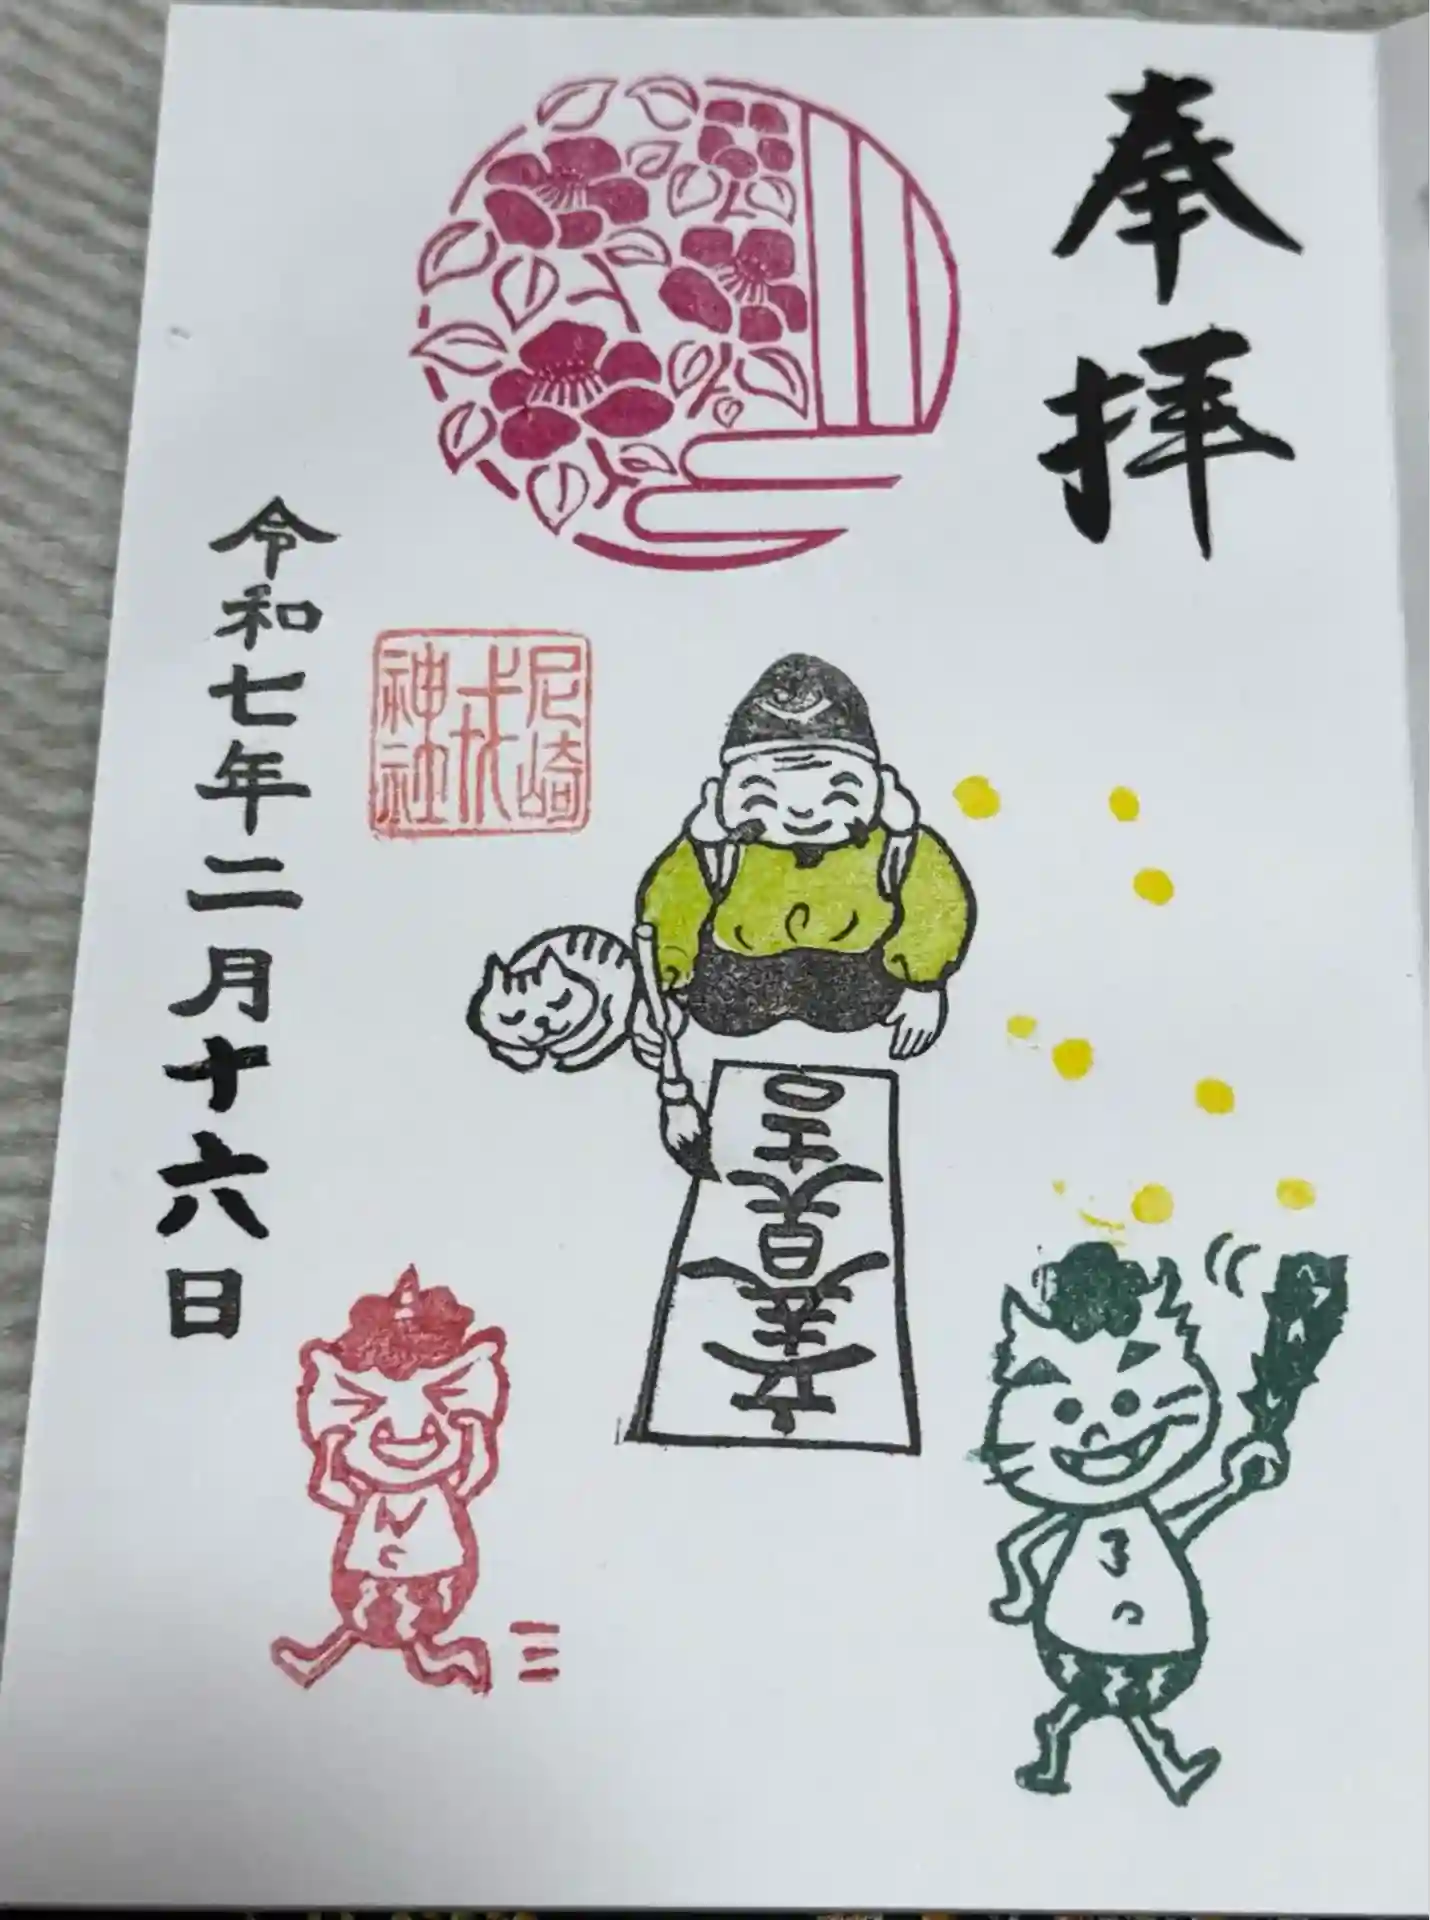 奉拝
立春大吉
尼崎
戎
神社
令和七年二月十六日